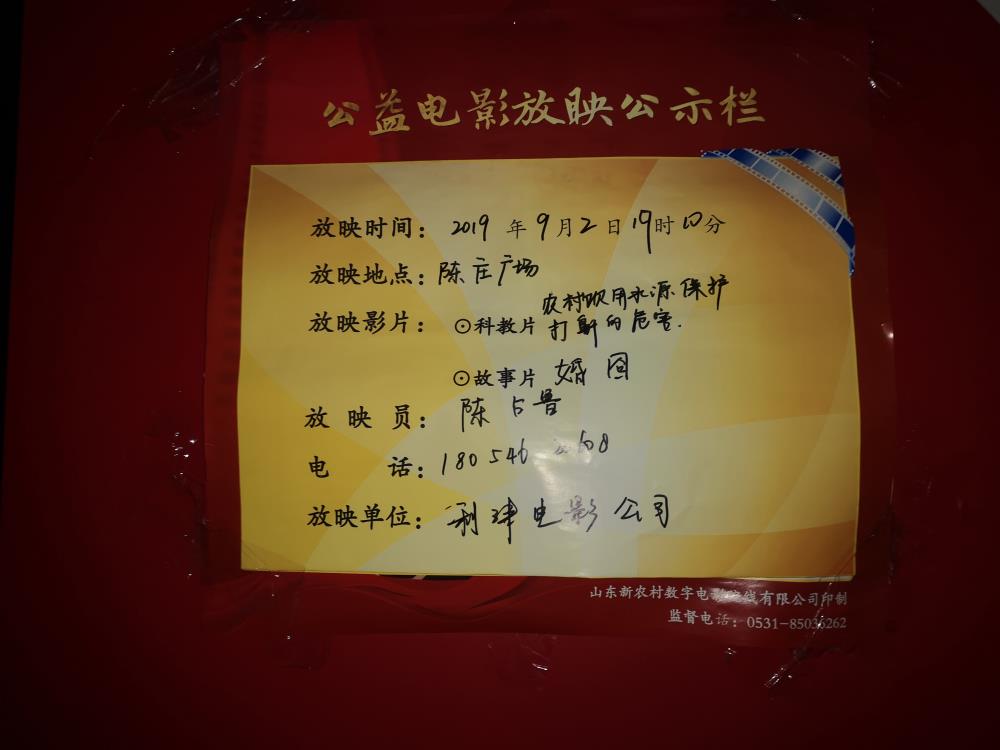 公益电影放映公示栏
放映时间：2019年9月2日19时10分
放映地点：陈庄广场
放映影片：⊙科教片 农村饮用水源保护
打鼾的危害.
⊙故事片 婚囧
放映员：陈占鲁
电话：180546 608
放映单位：利津电影公司
山东新农村数字电影院线有限公司印制
监督电话：0531-85036262